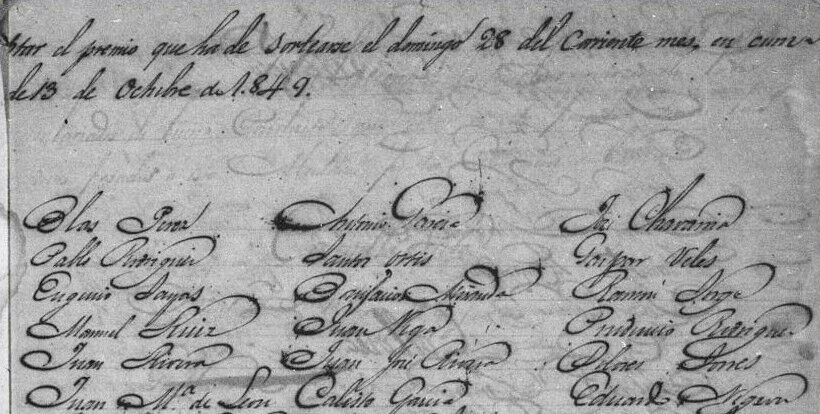 el premio que ha de sortearse el domingo 28 del Corriente mes, en cum-
de 13 de Octubre de 1.849.
Blas Perez Antonio Garcia José Chavarria
Pablo Rodriguez Santos Ortis Gaspar Veles
Eugenio Bonifacio Miranda Ramon Jorge
Manuel Ruiz Juan Vega Prudencio Rodriguez
Juan Rivera Juan José Rivera Dolores
Juan Mª de Leon Calisto Garcia Eduardo Segura